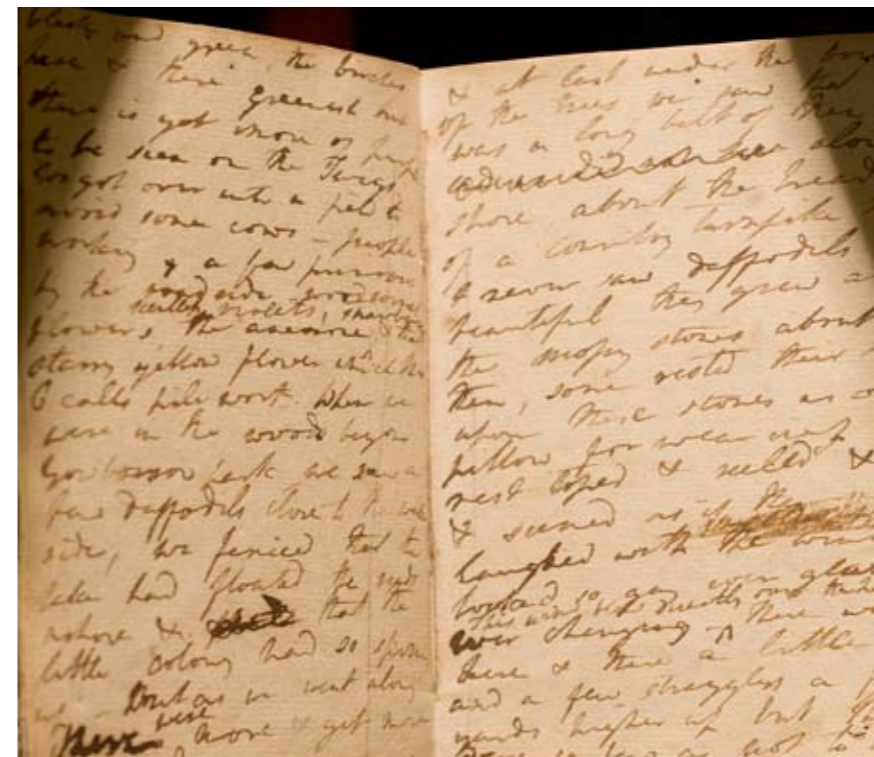 black and green, the birches
here & there greenish but
there is yet more of purple
to be seen on the Twigs.
We got over into a field to
avoid some cows — people
working, a few primroses
by the roadside, woodsorrel
scentless violets, strawberries
flowers, the anemone & that
starry yellow flower which Mrs
C calls pile wort. When we
were in the woods beyond
Gowbarrow park we saw a
few daffodils close to the water
side, we fancied that the
lake had floated the seeds
ashore & that the
little colony had so sprung
up — But as we went along
There were more & yet more
& at last under the
of the trees we saw that
was a long belt of them
shore, about the
of a country turnpike
I never saw daffodils
beautiful they grew
the mossy stones about
them, some rested their
upon these stones as a
pillow for weariness &
rest tossed & reeled &
& seemed as if they
laughed with the wind
looked so gay ever
This wind blew directly over the
ever changing. There was
here & there a little
and a few stragglers a
yards higher up but